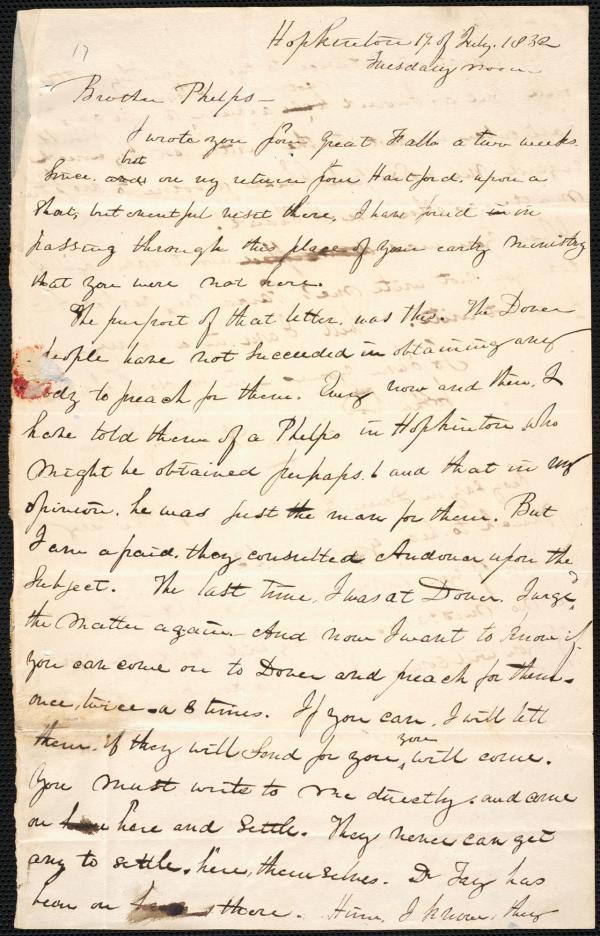 17
Hopkinton 17 of July. 1832
Tuesday noon
Brother Phelps —
I wrote you from Great Falls a two weeks
but
since. on my return from Hartford. upon a
short, but eventful visit there, I have found in in
passing through this place of your early ministry
that you were not here.
The purport of that letter, was this. The Dover
people have not succeeded in obtaining any
body to preach for them. Every now and then, I
have told them of a Phelps in Hopkinton who
might be obtained perhaps. & and that in my
opinion. he was just the man for them. But
I am afraid. they consulted Andover upon the
Subject. The last time, I was at Dover. I urged
the matter again. And now I want to know if
you can come on to Dover and preach for them
once, twice or 3 times. If you can, I will tell
them. if they will send for you, you will come.
You must write to me directly. and come
on here and settle. They never can get
any to settle, here, themselves. Dr Fay has
been on there. Him, I know, they